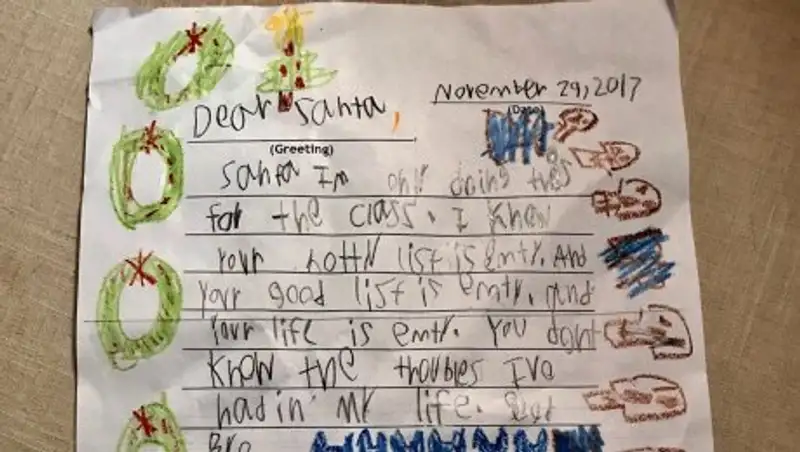 November 29, 2017
(Date)
Dear Santa,
(Greeting)
Santa Im only doing this
for the class. I know
your notty list is emty. And
your good list is emty. And
Your life is emty. You dont
know the troubles Ive
had in my life. Good
Bro